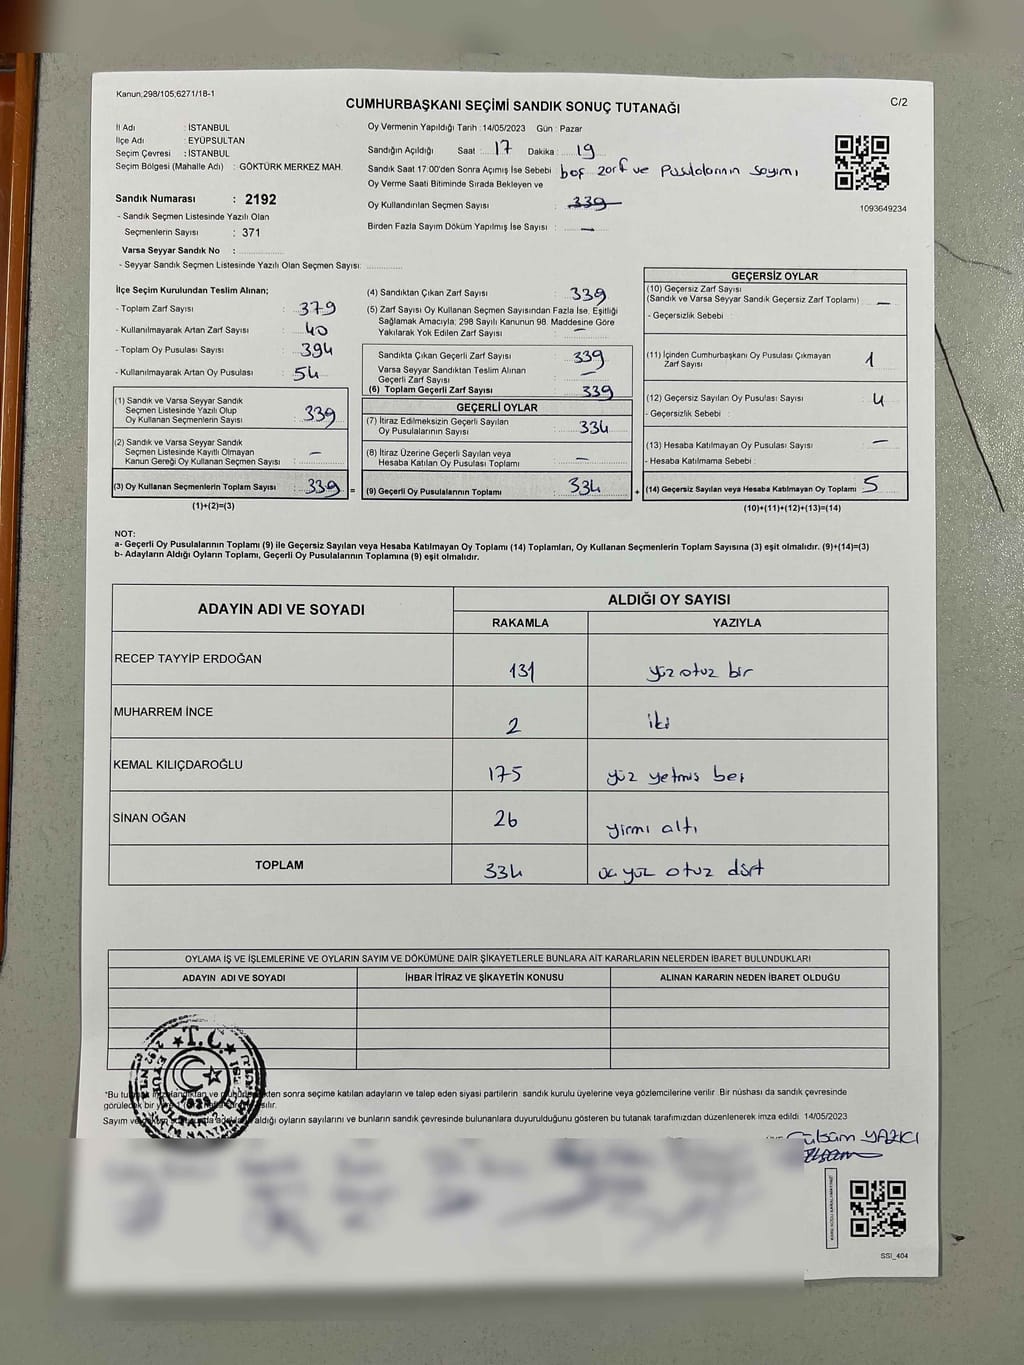 Kanun,298/105,6271/18-1
CUMHURBAŞKANI SEÇİMİ SANDIK SONUÇ TUTANAĞI
C/2
İl Adı : İSTANBUL
İlçe Adı : EYÜPSULTAN
Seçim Çevresi : İSTANBUL
Seçim Bölgesi (Mahalle Adı) : GÖKTÜRK MERKEZ MAH.
Sandık Numarası : 2192
- Sandık Seçmen Listesinde Yazılı Olan
Seçmenlerin Sayısı : 371
Varsa Seyyar Sandık No :
- Seyyar Sandık Seçmen Listesinde Yazılı Olan Seçmen Sayısı:
Oy Vermenin Yapıldığı Tarih :14/05/2023 Gün : Pazar
Sandığın Açıldığı Saat : 17 Dakika : 19
Sandık Saat 17:00'den Sonra Açımış İse Sebebi boş zorf ve Pusulolorının soyımı
Oy Verme Saati Bitiminde Sırada Bekleyen ve
Oy Kullandırılan Seçmen Sayısı : 339
Birden Fazla Sayım Döküm Yapılmış İse Sayısı : —
1093649234
İlçe Seçim Kurulundan Teslim Alınan;
- Toplam Zarf Sayısı : 379
- Kullanılmayarak Artan Zarf Sayısı : 40
- Toplam Oy Pusulası Sayısı : 394
- Kullanılmayarak Artan Oy Pusulası : 54
(1) Sandık ve Varsa Seyyar Sandık
Seçmen Listesinde Yazılı Olup
Oy Kullanan Seçmenlerin Sayısı : 339
(2) Sandık ve Varsa Seyyar Sandık
Seçmen Listesinde Kayıtlı Olmayan
Kanun Gereği Oy Kullanan Seçmen Sayısı : —
(3) Oy Kullanan Seçmenlerin Toplam Sayısı : 339 =
(1)+(2)=(3)
(4) Sandıktan Çıkan Zarf Sayısı : 339
(5) Zarf Sayısı Oy Kullanan Seçmen Sayısından Fazla İse, Eşitliği
Sağlamak Amacıyla; 298 Sayılı Kanunun 98. Maddesine Göre
Yakılarak Yok Edilen Zarf Sayısı : —
Sandıkta Çıkan Geçerli Zarf Sayısı : 339
Varsa Seyyar Sandıktan Teslim Alınan
Geçerli Zarf Sayısı : —
(6) Toplam Geçerli Zarf Sayısı : 339
GEÇERLİ OYLAR
(7) İtiraz Edilmeksizin Geçerli Sayılan
Oy Pusulalarının Sayısı : 334
(8) İtiraz Üzerine Geçerli Sayılan veya
Hesaba Katılan Oy Pusulası Toplamı : —
(9) Geçerli Oy Pusulalarının Toplamı : 334 +
GEÇERSİZ OYLAR
(10) Geçersiz Zarf Sayısı
(Sandık ve Varsa Seyyar Sandık Geçersiz Zarf Toplamı) : —
- Geçersizlik Sebebi :
(11) İçinden Cumhurbaşkanı Oy Pusulası Çıkmayan
Zarf Sayısı : 1
(12) Geçersiz Sayılan Oy Pusulası Sayısı : 4
- Geçersizlik Sebebi :
(13) Hesaba Katılmayan Oy Pusulası Sayısı : —
- Hesaba Katılmama Sebebi :
(14) Geçersiz Sayılan veya Hesaba Katılmayan Oy Toplamı : 5
(10)+(11)+(12)+(13)=(14)
NOT:
a- Geçerli Oy Pusulalarının Toplamı (9) ile Geçersiz Sayılan veya Hesaba Katılmayan Oy Toplamı (14) Toplamları, Oy Kullanan Seçmenlerin Toplam Sayısına (3) eşit olmalıdır. (9)+(14)=(3)
b- Adayların Aldığı Oyların Toplamı, Geçerli Oy Pusulalarının Toplamına (9) eşit olmalıdır.
ADAYIN ADI VE SOYADI
ALDIĞI OY SAYISI
RAKAMLA YAZIYLA
RECEP TAYYİP ERDOĞAN 131 yüz otuz bir
MUHARREM İNCE 2 iki
KEMAL KILIÇDAROĞLU 175 yüz yetmiş beş
SİNAN OĞAN 26 yirmi altı
TOPLAM 334 üç yüz otuz dört
OYLAMA İŞ VE İŞLEMLERİNE VE OYLARIN SAYIM VE DÖKÜMÜNE DAİR ŞİKAYETLERLE BUNLARA AİT KARARLARIN NELERDEN İBARET BULUNDUKLARI
ADAYIN ADI VE SOYADI İHBAR İTİRAZ VE ŞİKAYETİN KONUSU ALINAN KARARIN NEDEN İBARET OLDUĞU
T.C.
*Bu sonra seçime katılan adayların ve talep eden siyasi partilerin sandık kurulu üyelerine veya gözlemcilerine verilir. Bir nüshası da sandık çevresinde
görülecek bir
Sayım ve aldığı oyların sayılarını ve bunların sandık çevresinde bulunanlara duyurulduğunu gösteren bu tutanak tarafımızdan düzenlenerek imza edildi. 14/05/2023
YAZICI
SSI_404